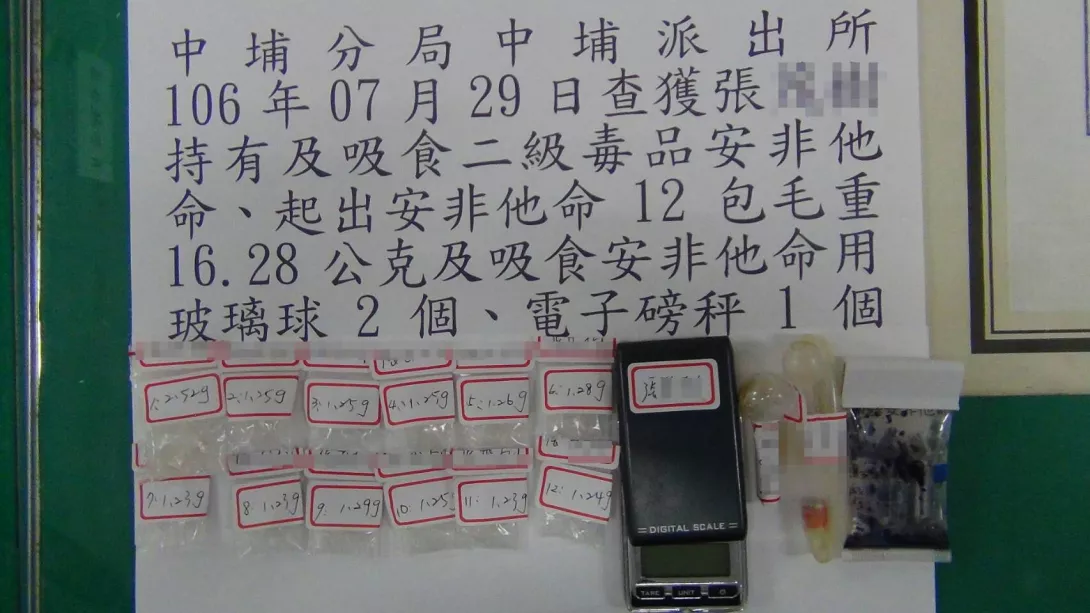 中埔分局中埔派出所
106年07月29日查獲張
持有及吸食二級毒品安非他
命、起出安非他命12包毛重
16.28公克及吸食安非他命用
玻璃球2個、電子磅秤1個
1:2.52g
2:1.25g
3:1.25g
4:1.25g
5:1.26g
6:1.28g
張
7:1.23g
8:1.23g
9:1.29g
10:1.25g
11:1.23g
12:1.24g
DIGITAL SCALE
TARE UNIT